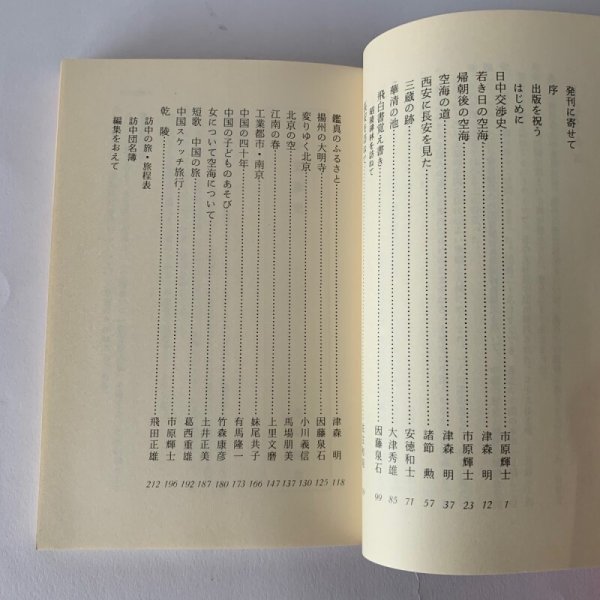 発刊に寄せて
序
出版を祝う
はじめに
日中交渉史……市原輝士 1
若き日の空海……津森 明 12
帰朝後の空海……市原輝士 23
空海の道……津森 明 37
西安に長安を見た……諸節 勲 57
三蔵の跡……安徳和士 71
華清の池……大津秀雄 85
飛白書覚え書き……因藤泉石 99
碑林を訪ねて
鑑真のふるさと……津森 明 118
揚州の大明寺……因藤泉石 125
変りゆく北京……小川義信 130
北京の空……馬場朋美 137
江南の春……上里文磨 147
工業都市・南京……妹尾共子 166
中国の四十年……有馬隆一 173
中国の子どものあそび……竹森康彦 180
女について空海について……土井正美 187
短歌 中国の旅……葛西重雄 192
中国スケッチ旅行……市原輝士 196
乾 陵……飛田正雄 212
訪中の旅・旅程表
訪中団名簿
編集をおえて